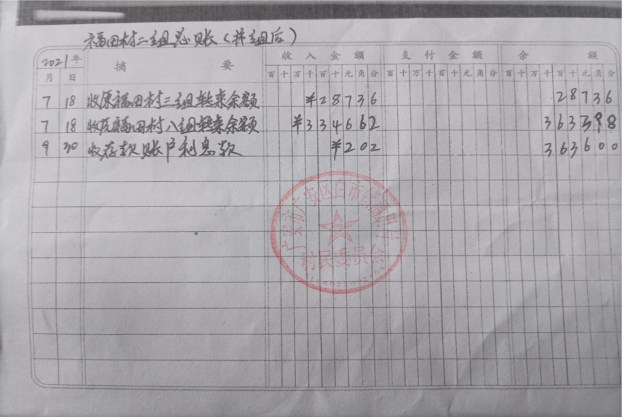 福田村二组总账（并组后）
2021年 摘要 收入金额 支付金额 余额
月 日 百十万千百十元角分 百十万千百十元角分 百十万千百十元角分
7 18 收原福田村二组转来余额 ¥28736 28736
7 18 收原福田村八组转来余额 ¥334662 363398
9 30 收存款账户利息款 ¥202 363600
村民委员会